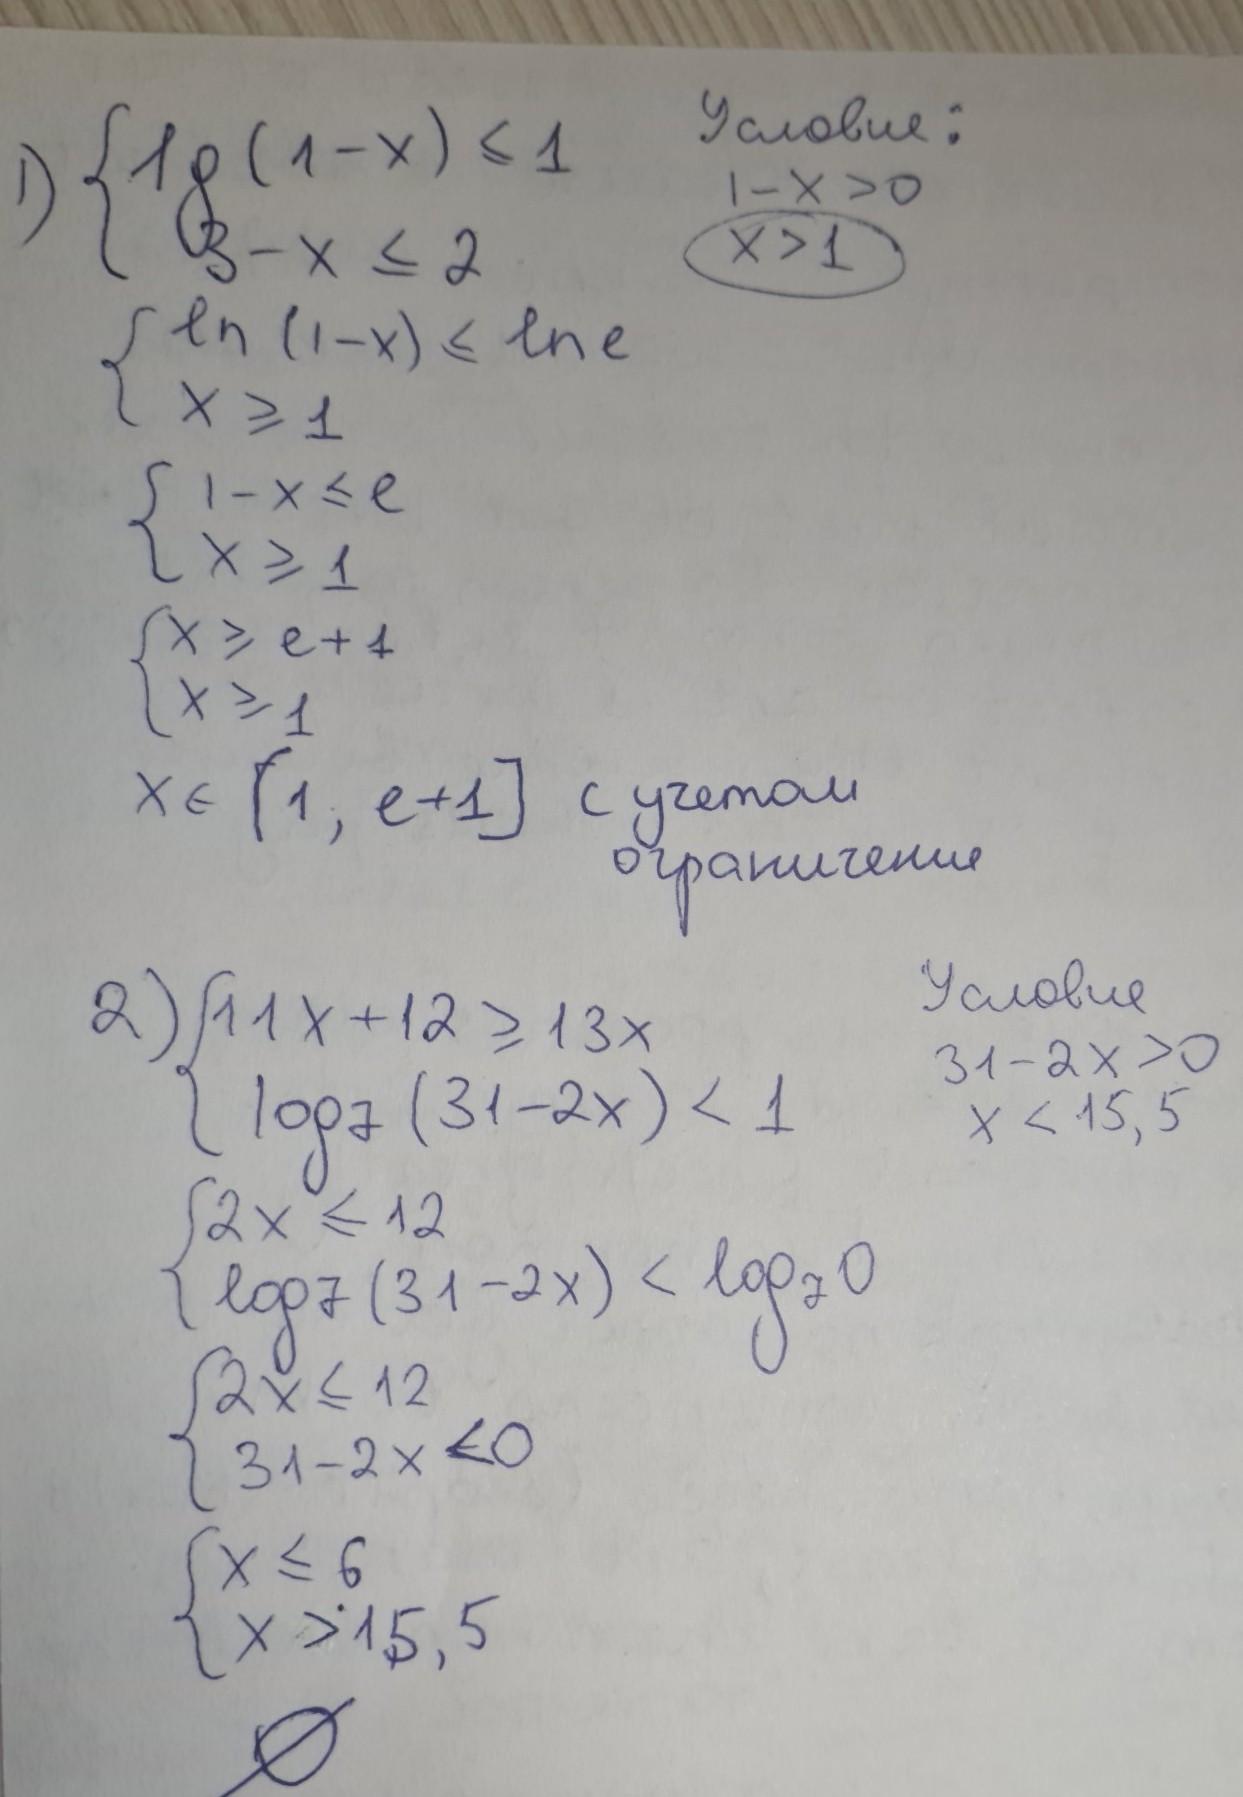 1) { lg(1-x) ≤ 1
3-x ≤ 2
Условие:
1-x>0
x>1
{ ln(1-x) ≤ lne
x ≥ 1
{ 1-x ≤ e
x ≥ 1
{ x ≥ e+1
x ≥ 1
x ∈ [1; e+1] с учетом
ограничение
2) { 11x+12 ≥ 13x
log₇(31-2x) < 1
Условие
31-2x>0
x < 15,5
{ 2x ≤ 12
log₇(31-2x) < log₇0
{ 2x ≤ 12
31-2x <0
{ x ≤ 6
x > 15,5
∅